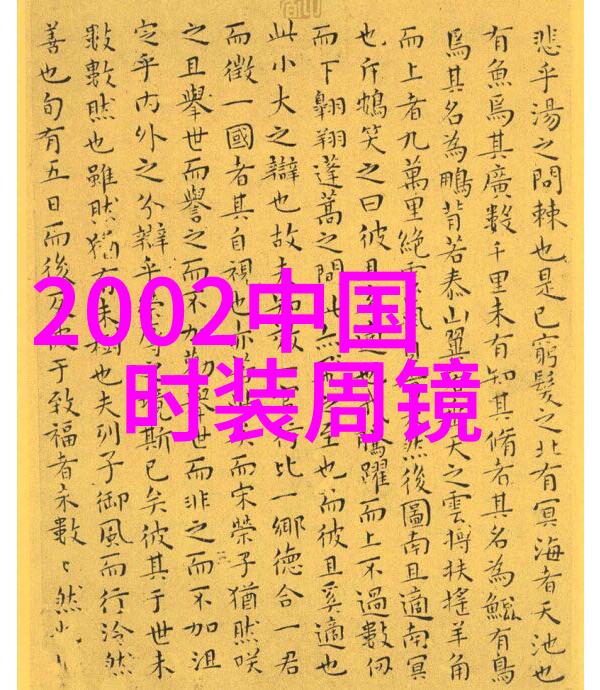 2002中国
时装周镜
悲乎湯之問棘也是已窮髮之北有冥海者天池也
有魚焉其廣數千里未有知其脩者其名為鯤有鳥
焉其名為鵬背若泰山翼天之雲摶扶搖羊角
而上者九萬里絕雲氣然後圖南且適南冥
也斥鴳笑之曰彼且騰躍而上不過數仞
而下翱翔蓬蒿之間此至也而彼且奚適也
此小大之辯也故夫知行比一鄉德合一君
而徵一國者其自視也亦而宋榮子猶然咲
之且舉世而譽之而不加勸舉世而非之而不加沮
定乎內外之分辯乎榮辱斯已矣彼其于世未
數數然也雖然猶有未樹也夫列子御風而行泠然
善也旬有五日而後于致福者未數〻然也